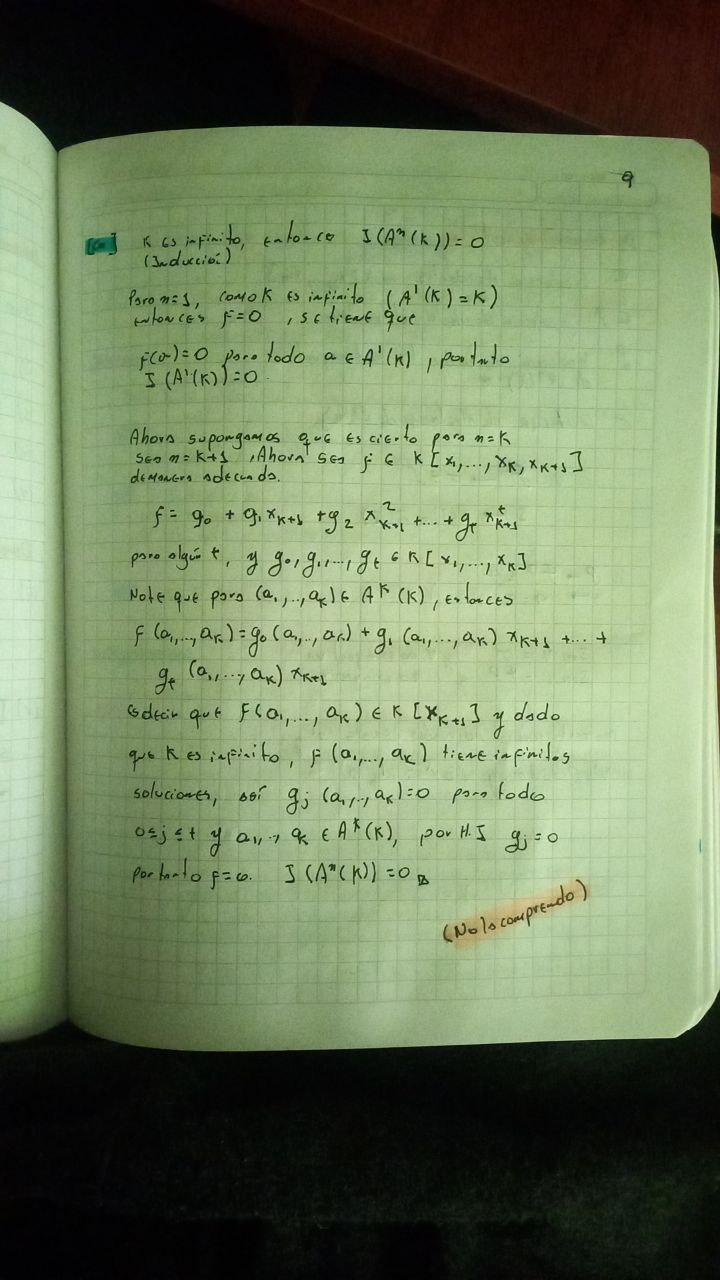 9
K es infinito, entonces I(Aⁿ(K))=0
(Inducción)
Para n=1, como K es infinito (A¹(K)=K)
entonces F=0, se tiene que
f(a)=0 para todo a ∈ A¹(K), por tanto
I(A¹(K))=0.
Ahora supongamos que es cierto para n=K
sea n=K+1, Ahora sea f ∈ K[x₁,...,x_K,x_{K+1}]
de manera adecuada.
f = g₀ + g₁x_{K+1} + g₂x²_{K+1} + ... + g_t x^t_{K+1}
para algún t, y g₀,g₁,...,g_t ∈ K[x₁,...,x_K]
Note que para (a₁,...,a_K) ∈ A^K(K), entonces
f(a₁,...,a_K)=g₀(a₁,...,a_K)+g₁(a₁,...,a_K)x_{K+1}+...+
g_t(a₁,...,a_K)x_{K+1}
es decir que f(a₁,...,a_K) ∈ K[x_{K+1}] y dado
que K es infinito, f(a₁,...,a_K) tiene infinitos
soluciones, así g_j(a₁,...,a_K)=0 para todo
0≤j≤t y a₁,...,a_K ∈ A^K(K), por H.I g_j=0
por tanto f=0. I(Aⁿ(K))=0
(No lo comprendo)